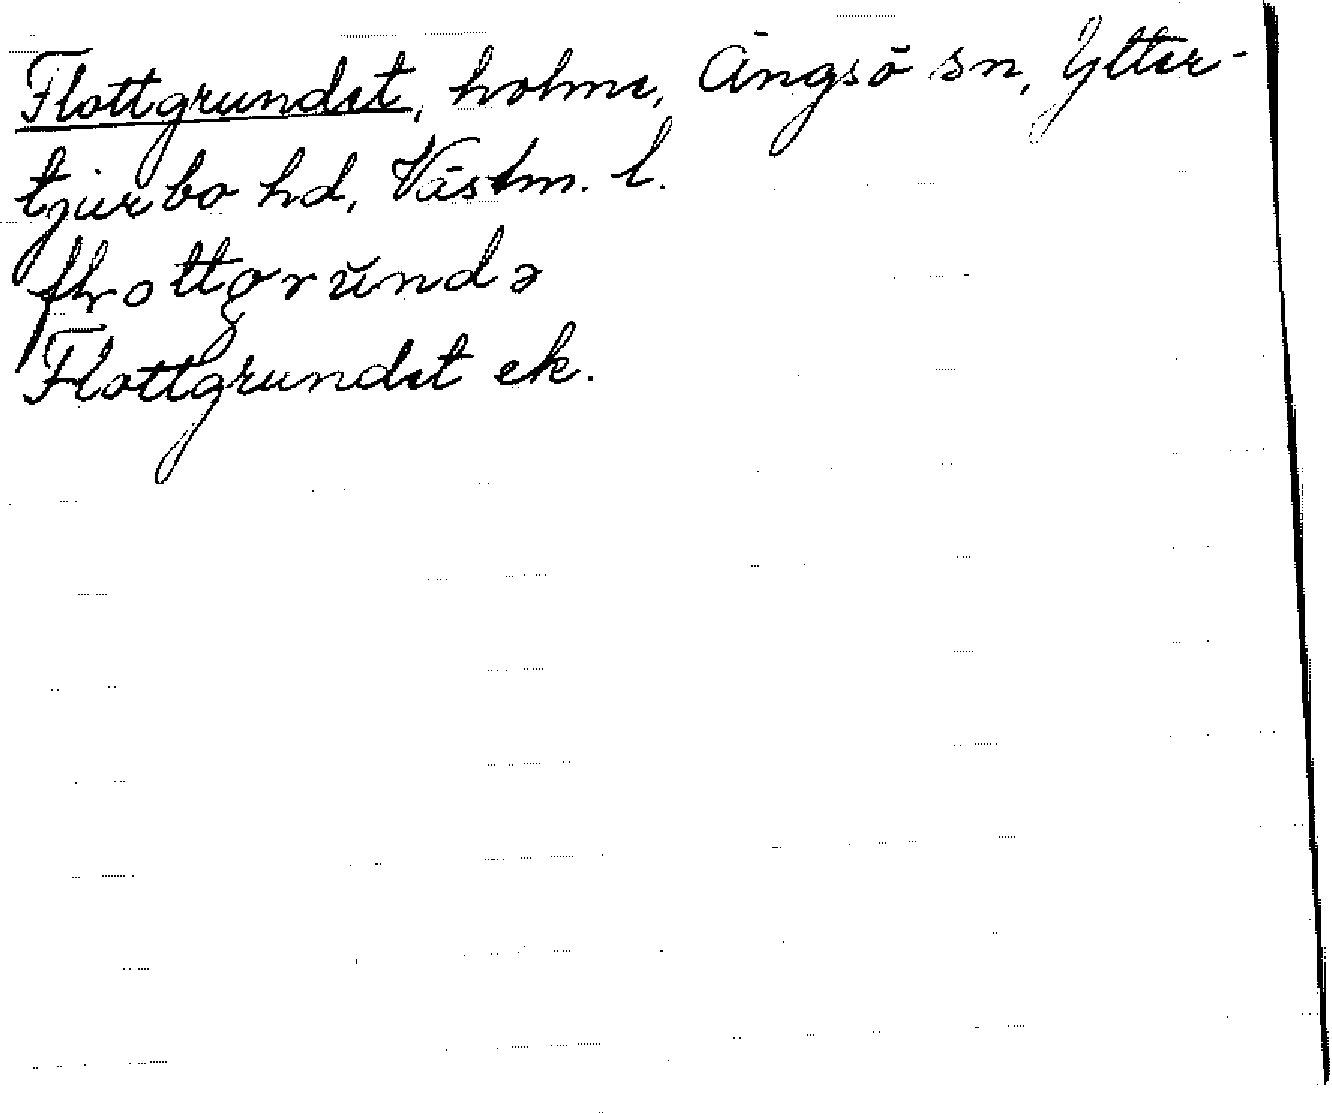 Flottgrundet, holme, Ängsö sn, Ytter-
tjurbo hd, Västm. l.
flottgrŭndə
Flottgrundet ek.